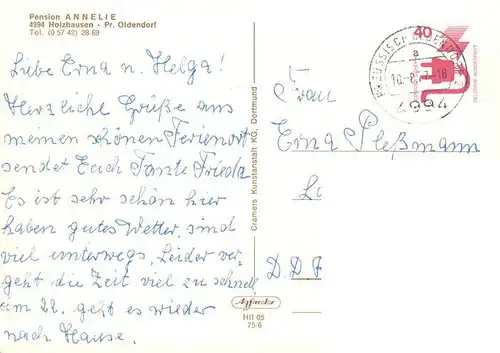 Pension ANNELIE
4994 Holzhausen - Pr. Oldendorf
Tel. (0 57 42) 28 69
Liebe Erna u. Helga!
Herzliche Grüße aus
meinen schönen Ferienort
sendet Euch Tante Frieda
Es ist sehr schön hier
haben gutes Wetter, sind
viel unterwegs, Leider ver-
geht die Zeit viel zu schnell
am 22. geht es wieder
nach Hause.
Cramers Kunstanstalt KG, Dortmund
HII 05
75/6
40
DEUTSCHE BUNDESPOST
PREUSSISCH OLDENDORF
a
4994
Frau
Erna Pleßmann
D.D.R